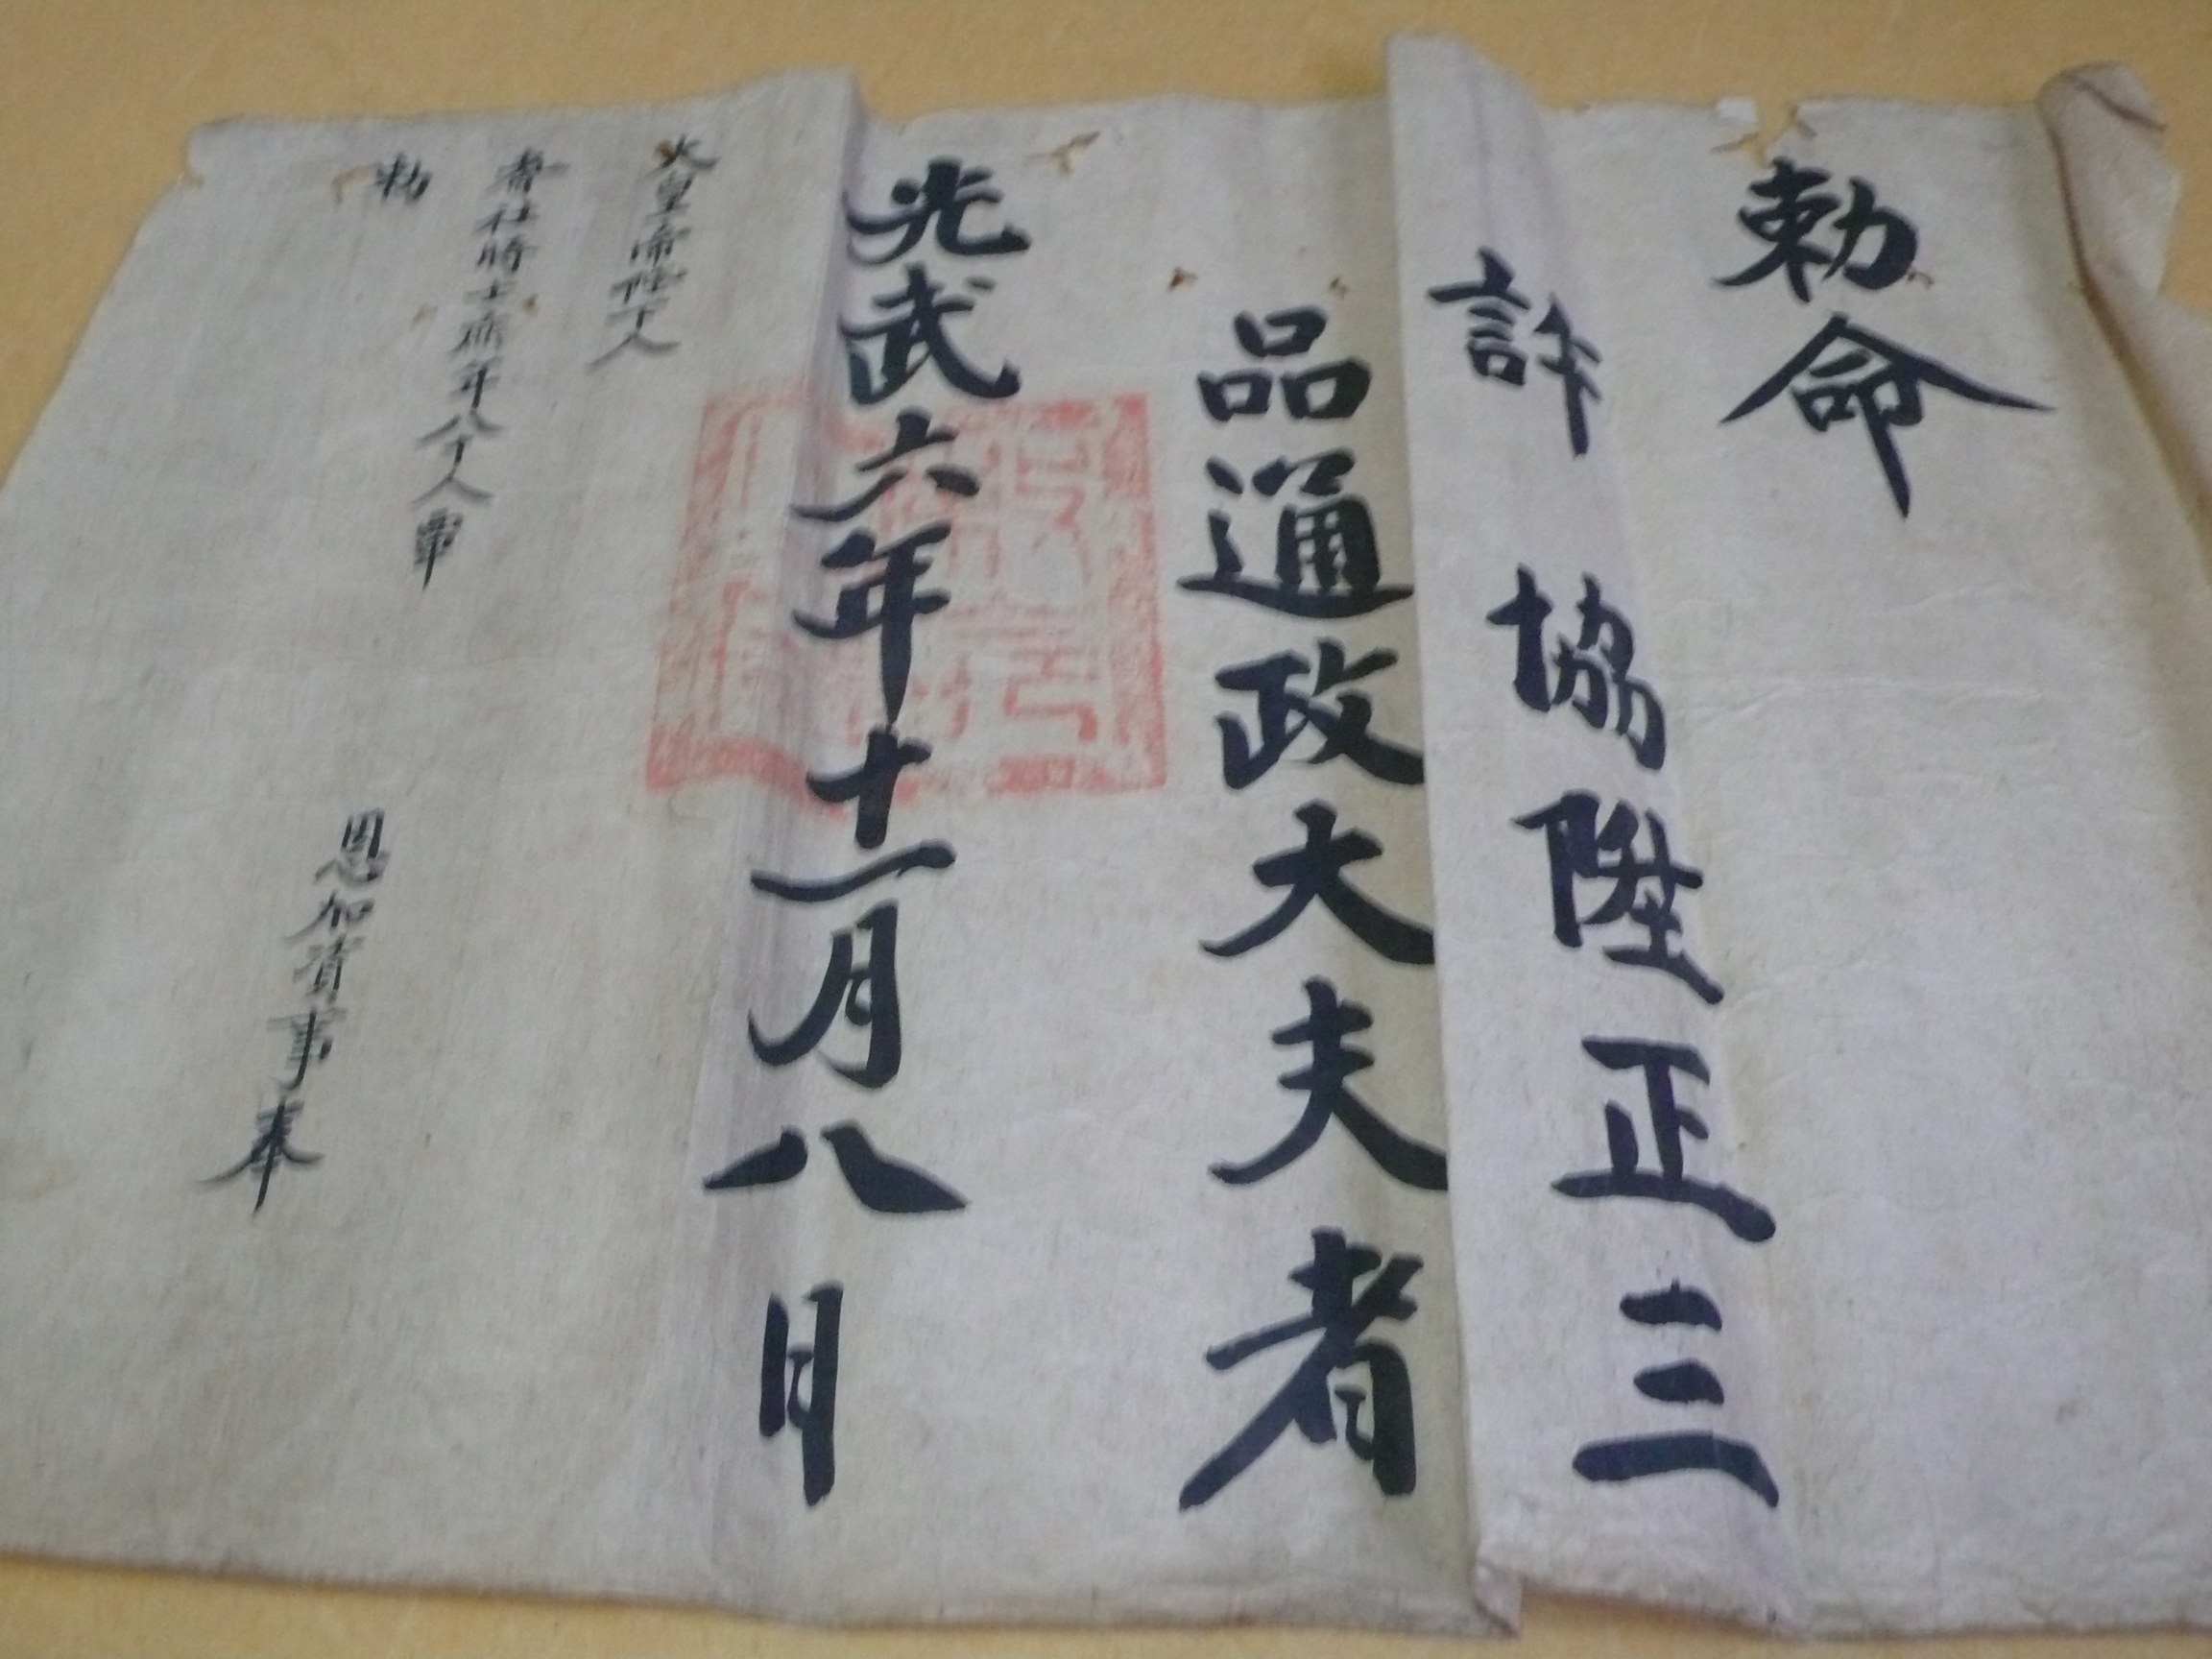 勅命
許 協陞正三
品通政大夫者
光武六年十一月八日
大皇帝陛下入
耆社時士庶年八十人審
勅
恩加資事奉